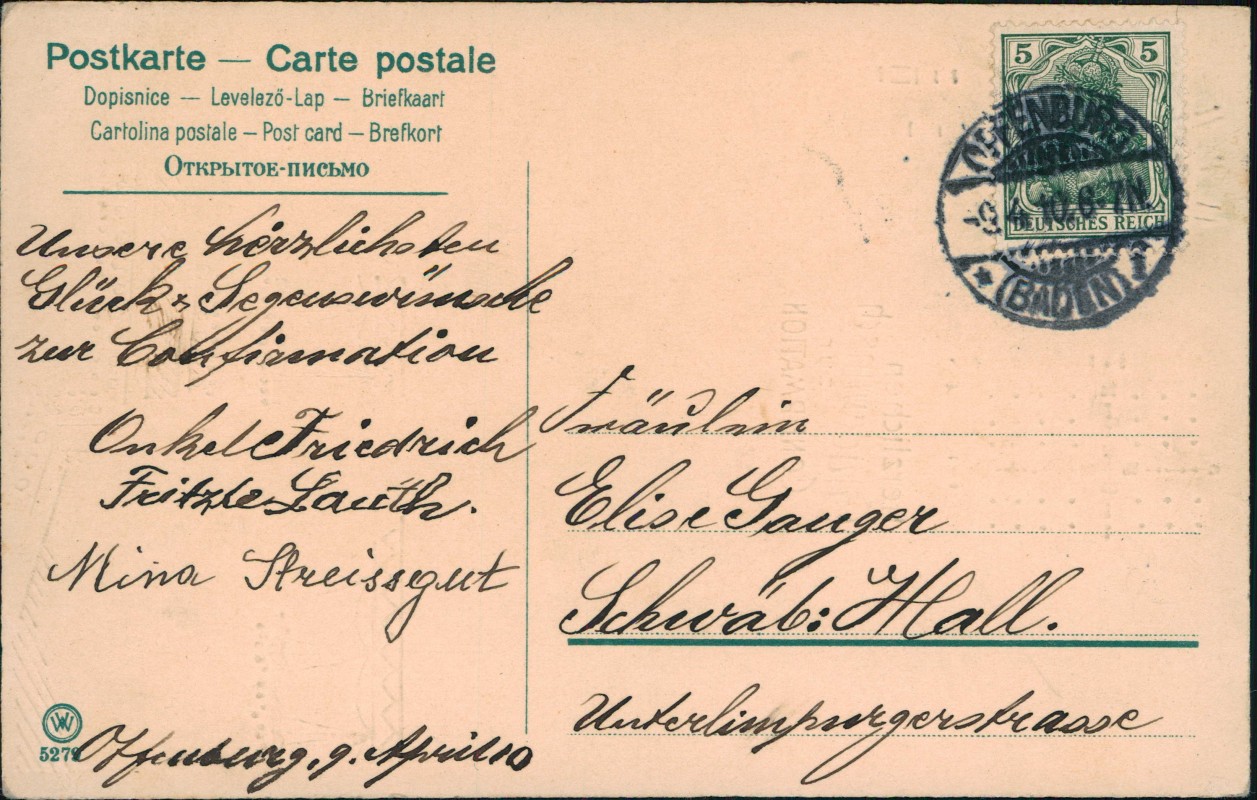 Postkarte — Carte postale
Dopisnice — Levelező-Lap — Briefkaart
Cartolina postale — Post card — Brefkort
Открытое-письмо
Unsere herzlichsten
Glück & Segenswünsche
zur Confirmation
Onkel Friedrich
Fritzle Lauth.
Mina Streissgut
Offenburg, 9. April 10
5279
5 5
DEUTSCHES REICH
OFFENBURG
9.4.10.6-7N.
* (BADEN) 1
Fräulein
Elise Gauger
Schwäb: Hall.
Unterlimpurgerstrasse